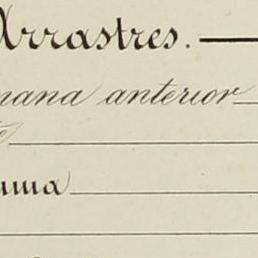 Arrastres.
mana anterior
uma